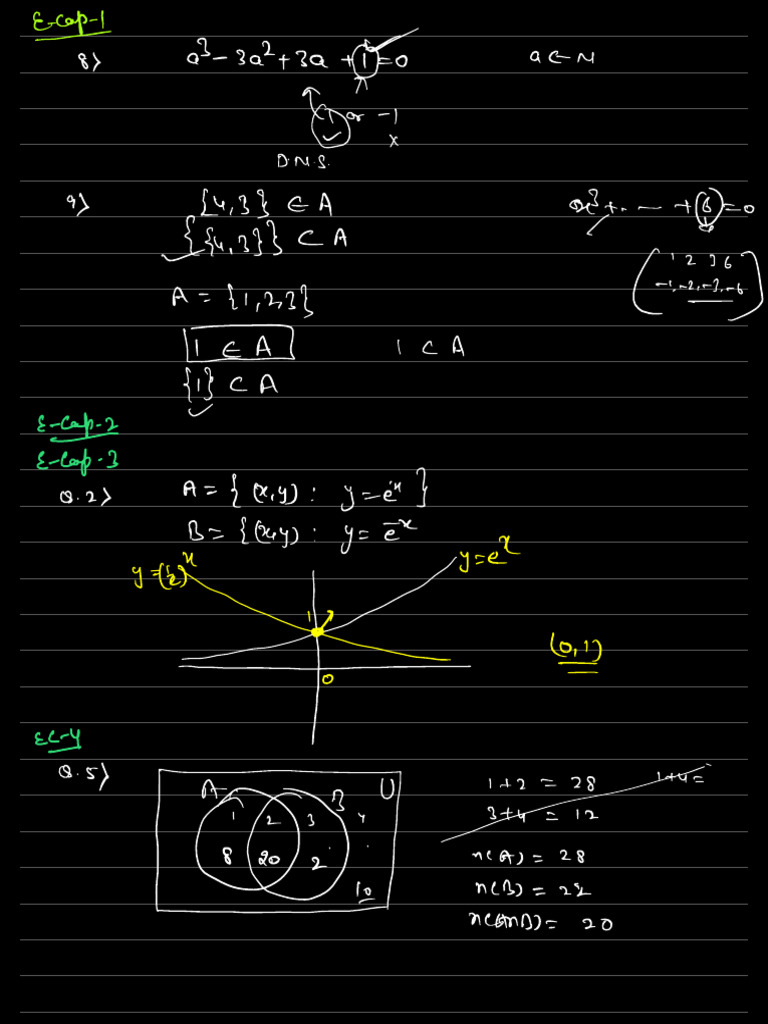 E-Cap-1
8) a³ - 3a² + 3a + 1 = 0 a ∈ N
1 or -1
x
D.N.S.
9) {4,3} ∈ A
{{4,3}} ⊂ A
x³ + . — + 6 = 0
1 2 3 6
-1, -2, -3, -6
A = {1,2,3}
1 ∈ A 1 ⊂ A
{1} ⊂ A
E-Cap-2
E-Cap-3
Q.2) A = { (x,y) : y = eˣ }
B = { (x,y) : y = e⁻ˣ
y = (½)ˣ y = eˣ
1
(0,1)
0
EC-4
Q.5) A B U
1 2 3 4
8 20 2
10
1+2 = 28 1+4 =
3+4 = 12
n(A) = 28
n(B) = 22
n(A∩B) = 20